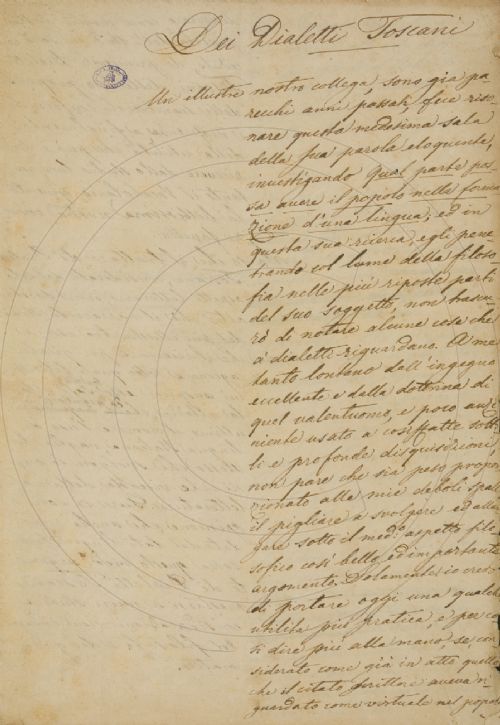 Dei Dialetti Toscani
Un illustre nostro collega, sono già pa
recchi anni passati, fece riso
nare questa medesima sala
della sua parola eloquente,
investigando qual parte pos
sa avere il popolo nella forma
zione d'una lingua; ed in
questa sua ricerca, egli pene
trando col lume della filoso
fia nelle più riposte parti
del suo soggetto, non trascu
rò di notare alcune cose che
a' dialetti riguardano. A me
tanto lontano dall'ingegno
eccellente e dalla dottrina di
quel valentuomo, e poco o
niente usato a cosiffatte sotti
li e profonde disquisizioni,
non pare che sia peso propor
zionato alle mie deboli spalle
il pigliare a svolgere ed alle
gare sotto il med: aspetto filo
sofico così bello ed importante
argomento. Solamente io credo
di portare oggi una qualche
utilità più pratica, e per co
sì dire più alla mano, se, con
siderato come già in atto quello
che il citato scrittore aveva ri
guardato come virtuale nel popolo